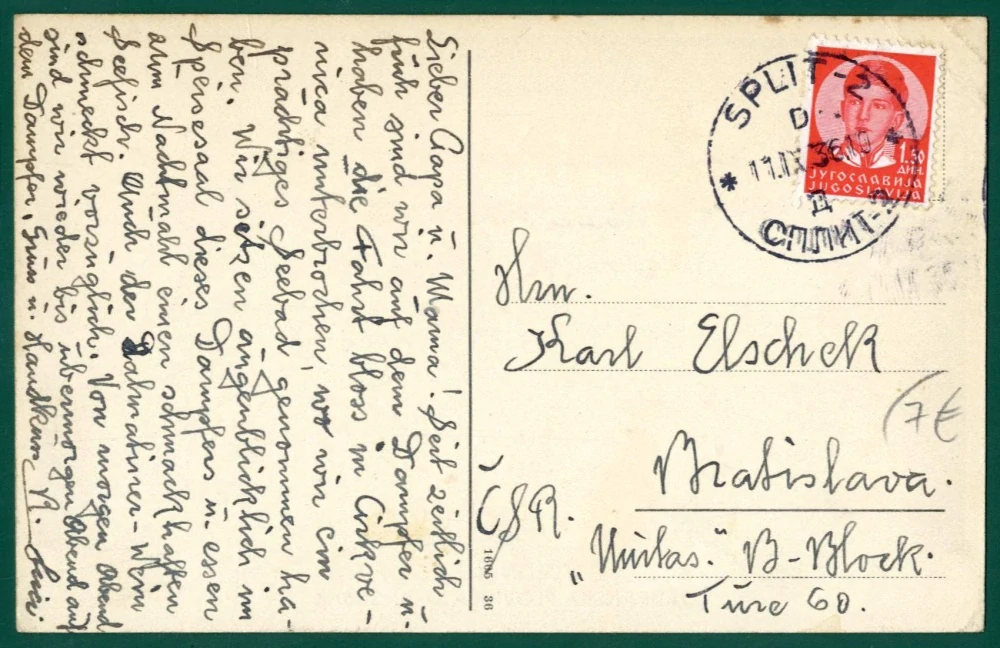 Lieber Papa u. Mama! Seit zeitlich
früh sind wir auf dem Dampfer u.
haben die Fahrt bloss in Cirkve-
nica unterbrochen, wo wir ein
prächtiges Seebad genommen ha-
ben. Wir sitzen augenblicklich im
Speisesaal dieses Dampfers u. essen
zum Nachtmahl einen schmackhaften
Seefisch. Auch der Dalmatiner-Wein
schmeckt vorzüglich. Von morgen Abend
sind wir wieder bis übermorgen Abend auf
dem Dampfer. Gruss u. Handkuss
SPLIT-2
D
11.IX.36.19
Д
СПЛИТ-2
1.50
ДИН.
ЈУГОСЛАВИЈА
JUGOSLAVIJA
Hrn.
Karl Elschek
Bratislava.
ČSR.
"Unitas." B-Block.
Türe 60.
(7€
1685 36